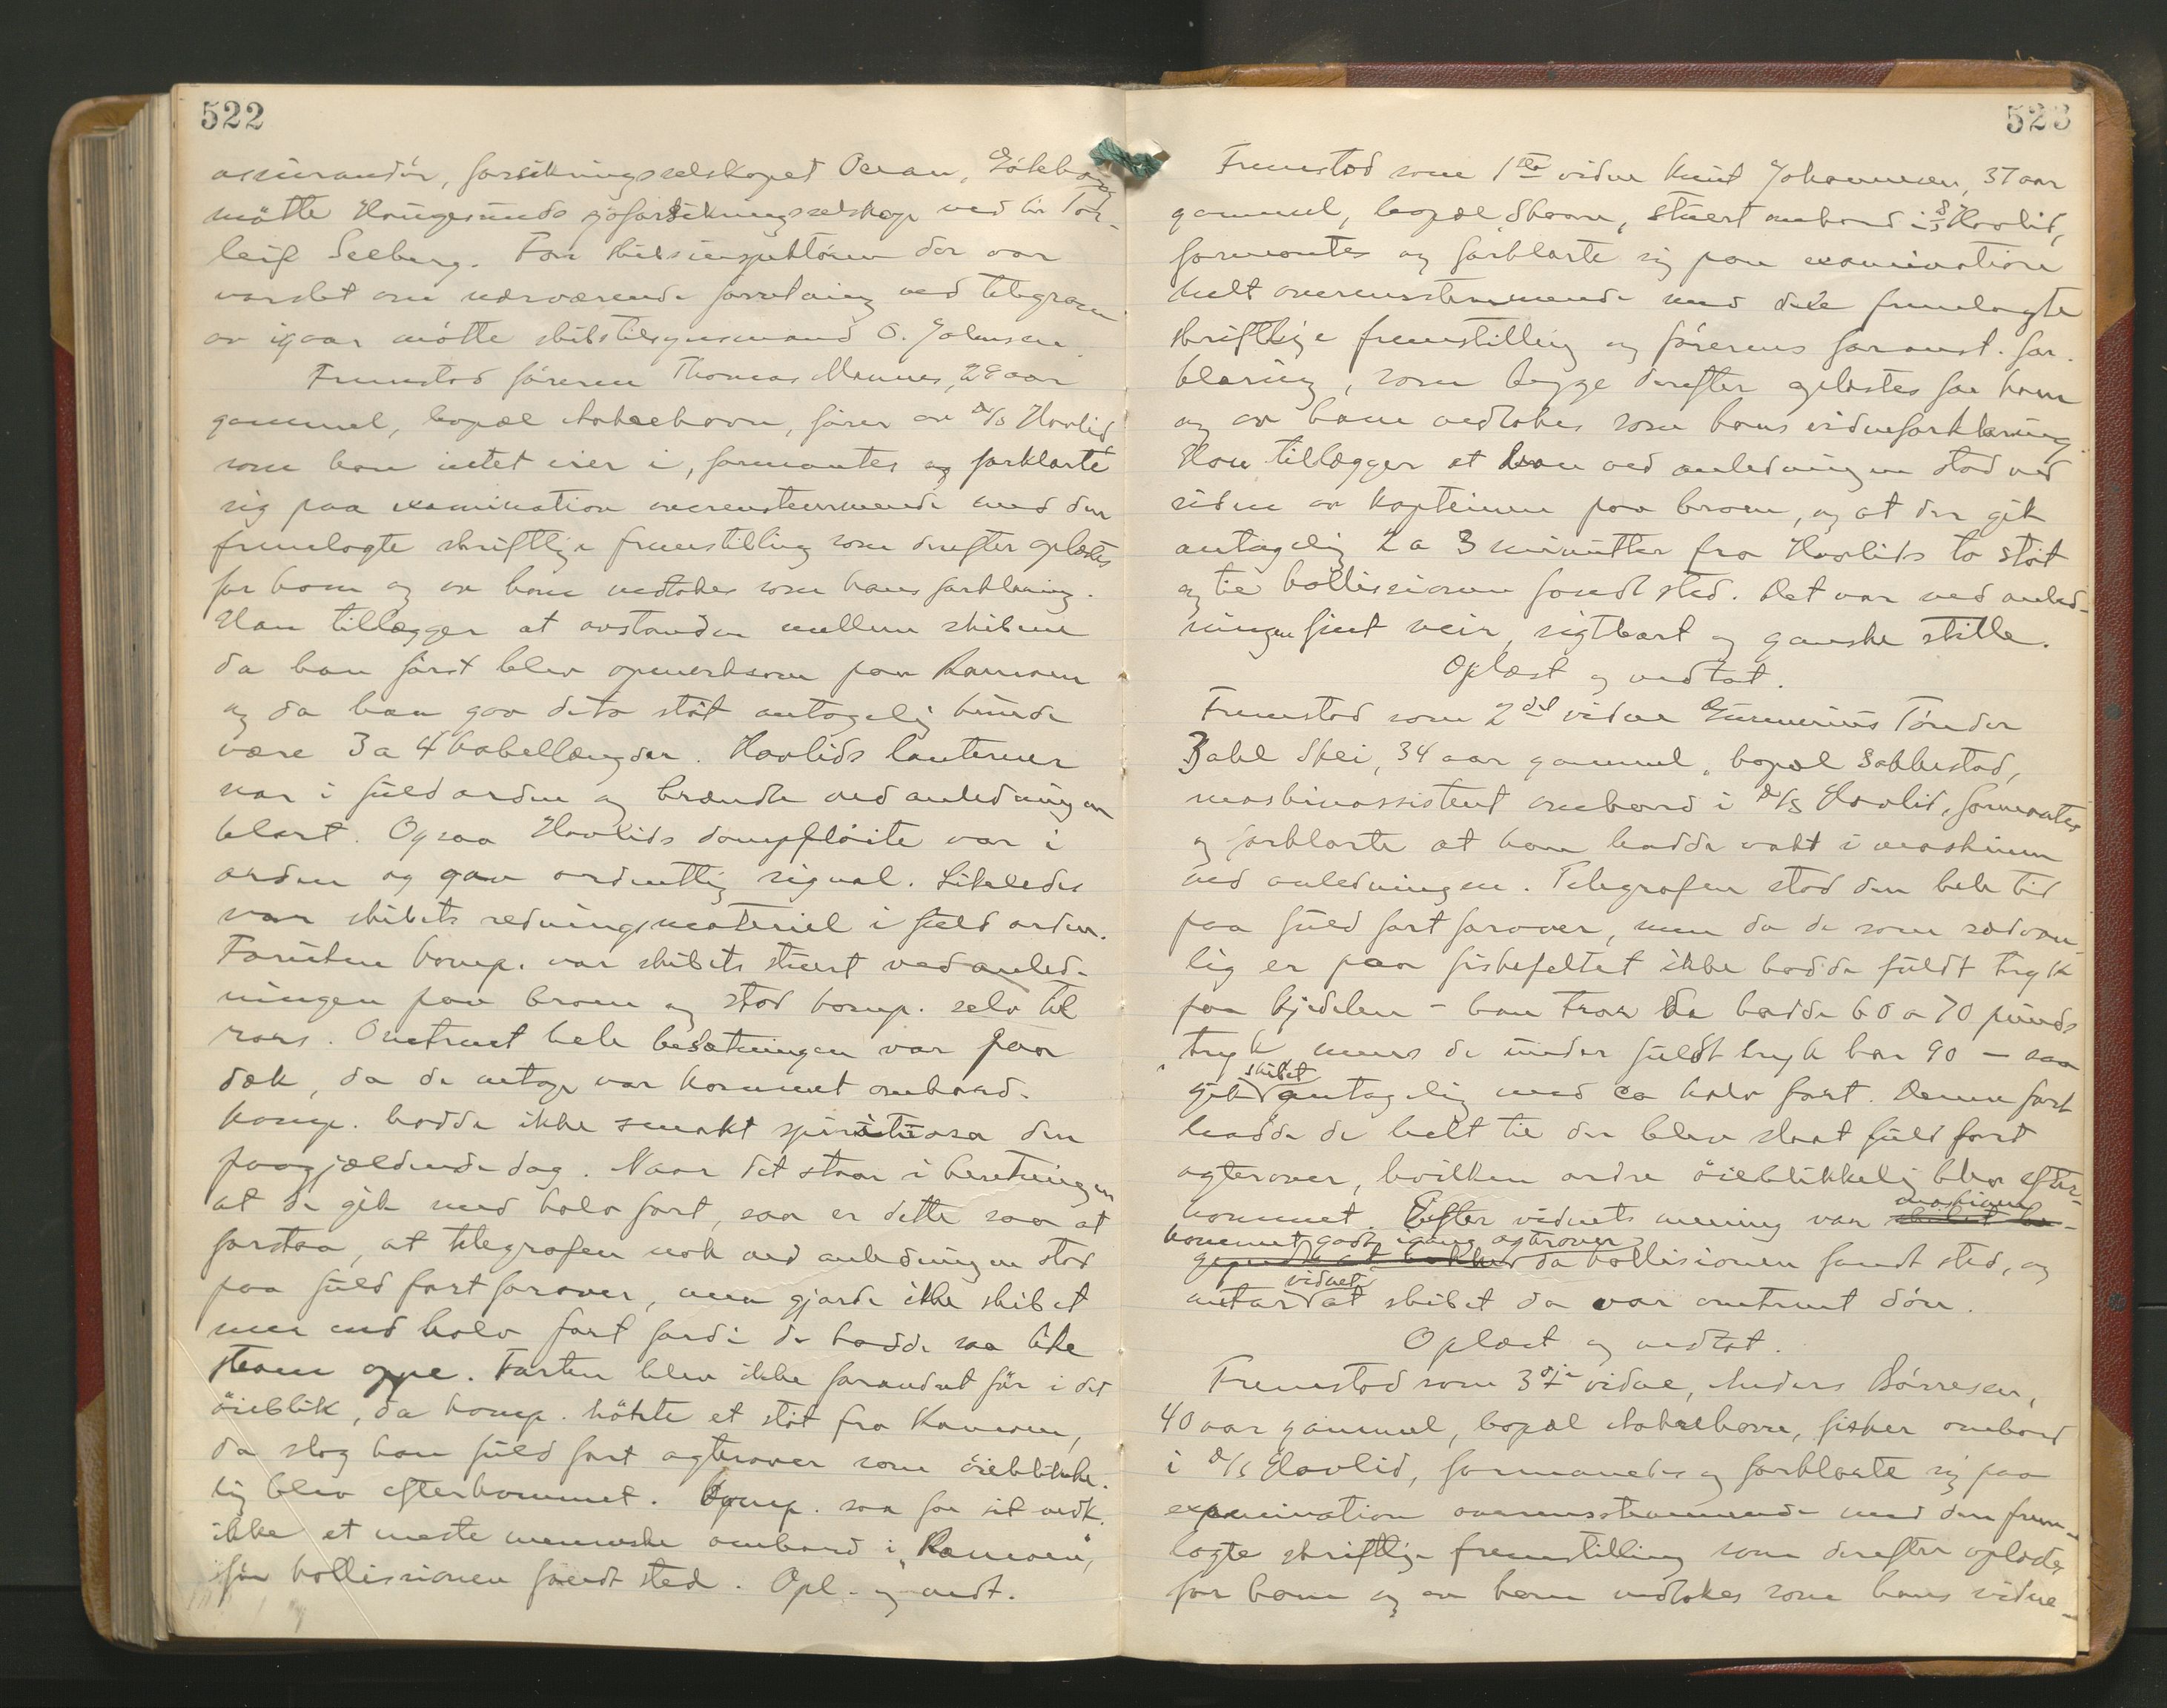 522
assurandör, forsikringsselskapet Ocean, Göteborg
mötte Haugesunds sjöforsikringsselskap ved hr Tor-
leif Seeberg. For skibsinspektören der var
varslet om nærværende forretning ved telegram
av igaar mötte skibstilsynsmand O. Johnsen.
Fremstod föreren Thomas Mannes, 28 aar
gammel, bopæl Aakrehavn, förer av D/S Havlid
som han intet eier i, formantes og forklarte
sig paa examination overensstemmende med den
fremlagte skriftlige fremstilling som derefter oplæstes
for ham og av ham vedtokes som hans forklaring.
Han tillægger at avstanden mellem skibene
da han först blev opmerksom paa Ramoen
og da han gav de to støt antagelig kunde
være 3 a 4 kabellængder. Havlids lanterner
var i fuld orden og brændte ved anledningen
klart. Ogsaa Havlids dampflöite var i
orden og gav ordentlig signal. Likeledes
var skibets redningsmateriel i fuld orden.
Foruten komp. var skibets stuert ved anled-
ningen paa broen og stod komp. selv til
rors. Omtrent hele besætningen var paa
dæk, da de netop var kommet ombord.
Komp. hadde ikke smakt spirituosa den
paagjældende dag. Naar det staar i beretningen
at de gik med halv fart, saa er dette saa at
forstaa, at telegrafen nok ved anledningen stod
paa fuld fart forover, men gjorde ikke skibet
mer end halv fart fordi de hadde saa lite
steam oppe. Farten blev ikke forandret för i det
öieblik, da komp. hörte et støt fra Ramoen,
da slog han fuld fart agterover som öieblikke-
lig blev efterkommet. Komp. saa for sit vedk.
ikke et eneste menneske ombord i "Ramoen",
för kollissionen fandt sted. Opl. og vedt.
523
Fremstod som 1ste vidne Knut Johannesen, 37 aar
gammel, bopæl Skaare, stuert ombord i D/S Havlid,
formantes og forklarte sig paa examination
helt overensstemmende med den fremlagte
skriftlige fremstilling og förerens foranst. for-
klaring, som begge derefter oplæstes for ham
og av ham vedtokes som hans vidneforklaring.
Han tillægger at han ved anledningen stod ved
siden av kapteinen paa broen, og at der gik
antagelig 2 a 3 minutter fra Havlids to støt
og til kollissionen fandt sted. Det var ved anled-
ningen fint veir, sigtbart og ganske stille.
Oplæst og vedtat.
Fremstod som 2det vidne Gunnerius Tönder
Dahl Skei, 34 aar gammel, bopæl Sakkestad,
maskinassistent ombord i D/S Havlid, formantes
og forklarte at han hadde vakt i maskinen
ved anledningen. Telegrafen stod den hele tid
paa fuld fart forover, men da de som sedvan-
lig er paa fiskefeltet ikke hadde fuldt tryk
paa kjedelen – han tror de hadde 60 a 70 punds
tryk mens de under fuldt tryk har 90 – saa
gik skibet antagelig med ca halv fart. Denne fart
hadde de helt til der blev slaat fuld fart
agterover, hvilken ordre öieblikkelig blev efter-
kommet. Efter vidnets mening var maskinen
kommet godt igang agterover da kollisionen fandt sted, og
antar vidnet at skibet da var omtrent död.
Oplæst og vedtat.
Fremstod som 3dje vidne, Anders Börresen,
40 aar gammel, bopæl Aakrehavn, fisker ombord
i D/S Havlid, formantes og forklarte sig paa
examination overensstemmende med den frem-
lagte skriftlige fremstilling som derefter oplæstes
for ham og av ham vedtokes som hans vidne-